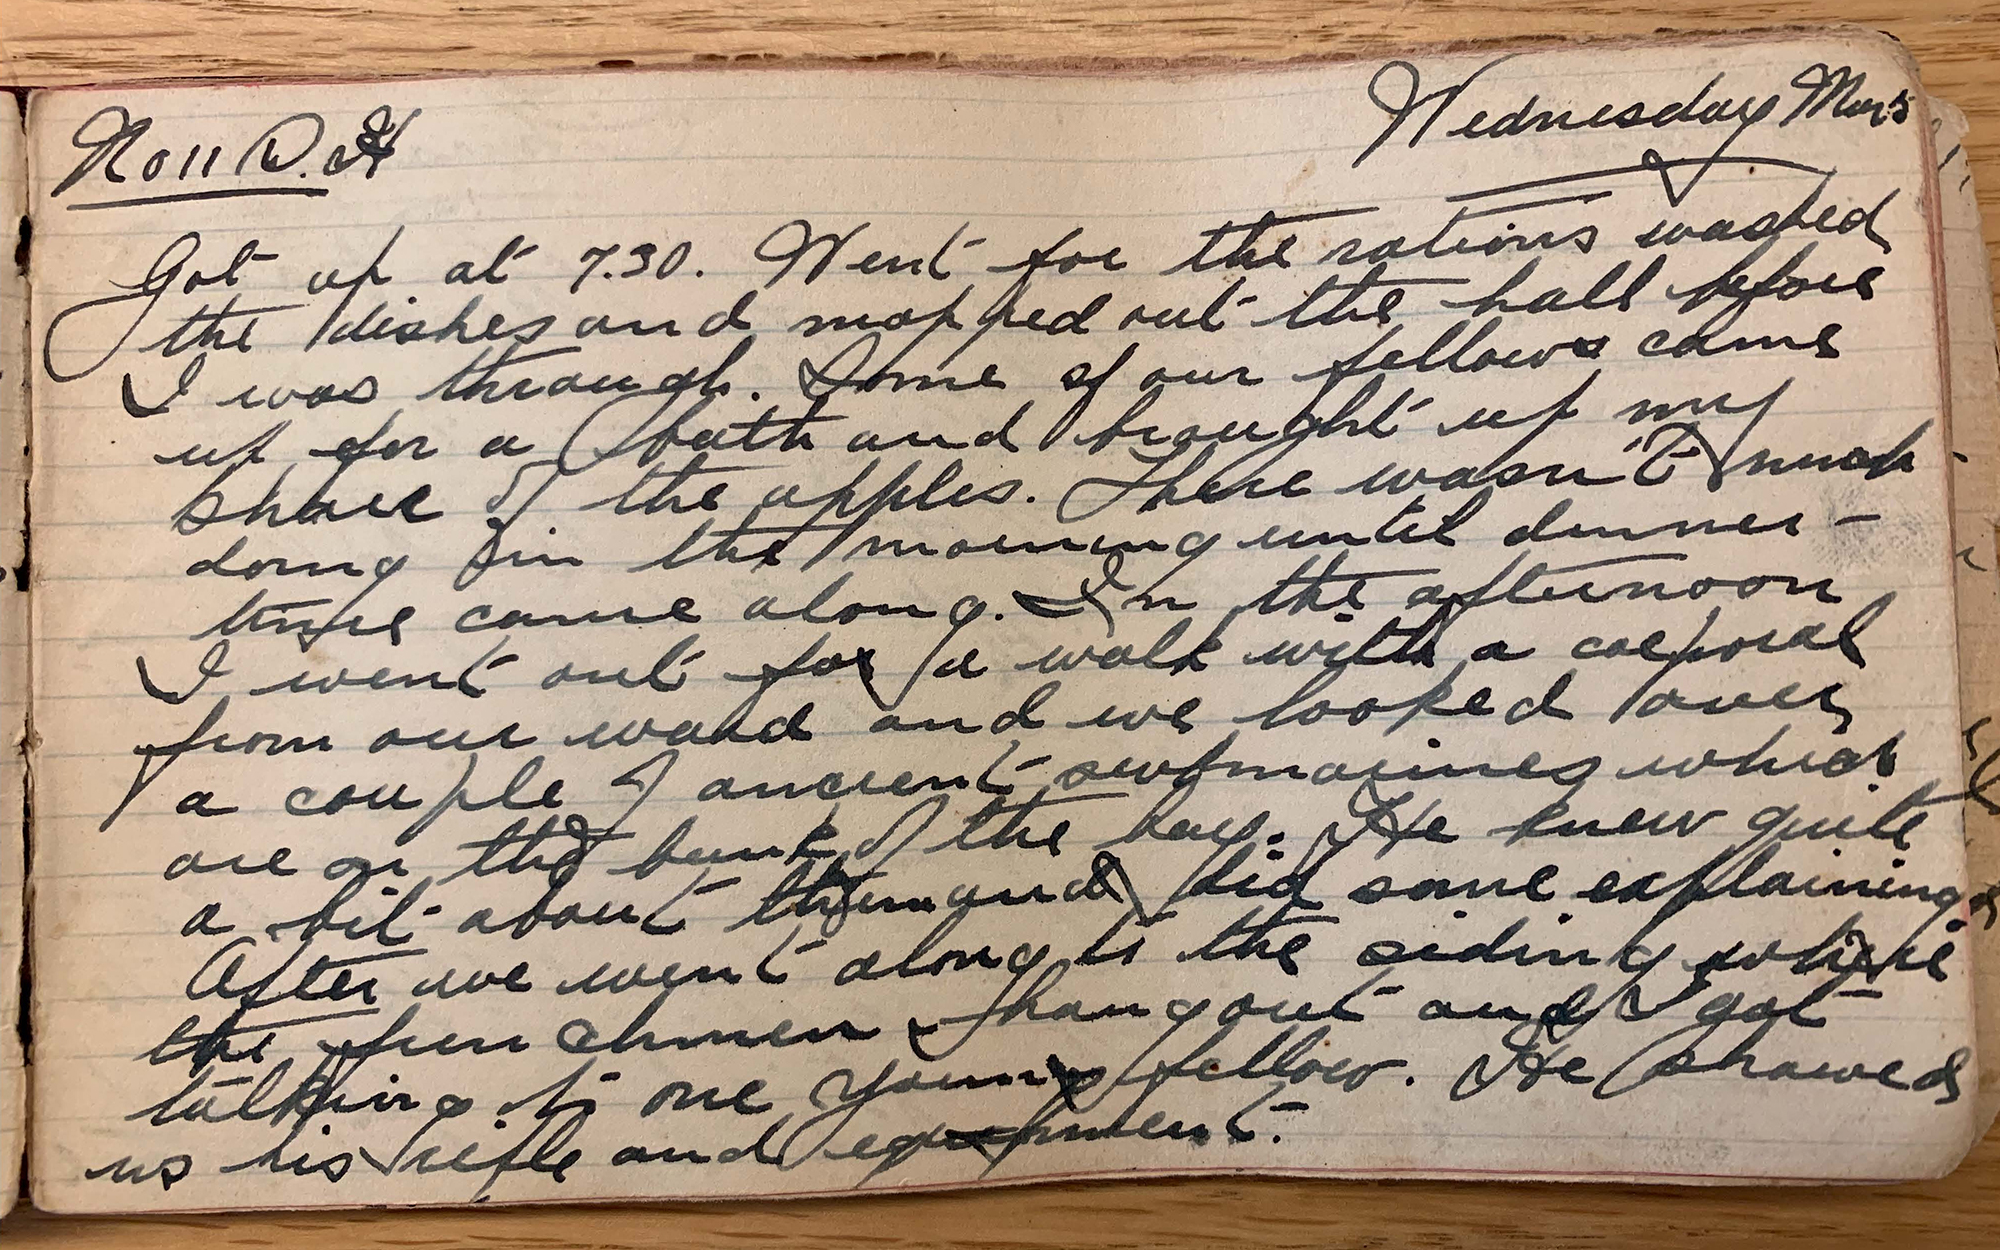 No 11 D. H
Wednesday Mar 5
Got up at 7.30. Went for the rations washed
the dishes and mopped out the hall before
I was through. Some of our fellows came
up for a bath and brought up my
share of the apples. There wasn't much
doing in the morning until dinner-
time came along. In the afternoon
I went out for a walk with a corporal
from our ward and we looked over
a couple of ancient submarines which
are on the bank of the bay. He knew quite
a bit about them and did some explaining
After we went along to the siding where
the frenchmen hang out and I got
talking to one young fellow. He showed
us his rifle and equipment.